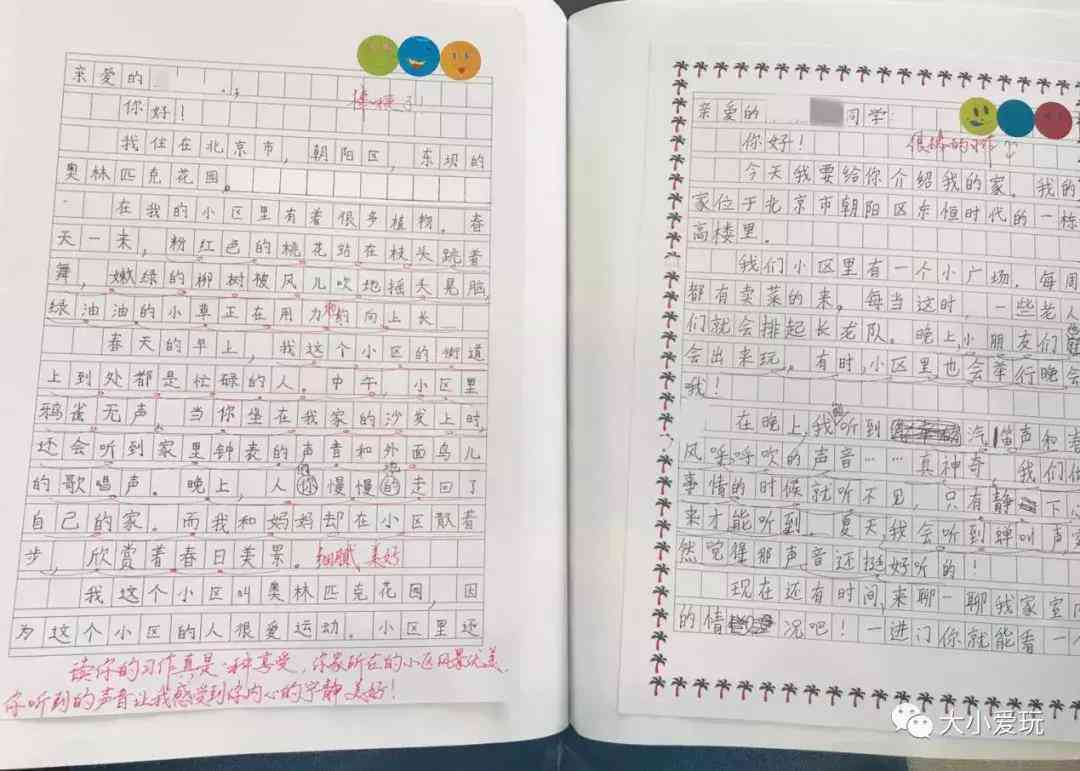 亲爱的
你好！
我住在北京市，朝阳区，东坝的
奥林匹克花园。
在我的小区里有着很多植物。春
天一来，粉红色的桃花站在枝头跳着
舞，嫩绿的柳树被风儿吹地摇头晃脑，
绿油油的小草正在用力的向上长
春天的早上，我这个小区的街道
上到处都是忙碌的人。中午，小区里
鸦雀无声，当你坐在我家的沙发上时，
还会听到家里钟表的声音和外面鸟儿
的歌唱声。晚上，人你慢慢的走回了
自己的家。而我和妈妈却在小区散着
步，欣赏着春日美景。细腻 美好
我这个小区叫奥林匹克花园，因
为这个小区的人很爱运动。小区里还
读你的习作真是一种享受，你家所在的小区风景优美，
你听到的声音让我感受到你内心的宁静美好！
亲爱的 同学
你好！ 很棒的习作
今天我要给你介绍我的家。我的
家位于北京市朝阳区东恒时代的一栋
高楼里。
我们小区里有一个小广场，每周
都有卖菜的来。每当这时，一些老人
们就会排起长龙队。晚上，小朋友们
会出来玩，有时，小区里也会举行晚会
哦！
在晚上，我听到汽笛声和
风呼呼吹的声音……真神奇 我们
事情的时候就听不见，只有静下
来才能听到。夏天，我会听到蝉叫声
然觉得那声音还挺好听的！
现在还有时间，来聊一聊我家室
的情况吧！一进门你就能看一个
大小爱玩